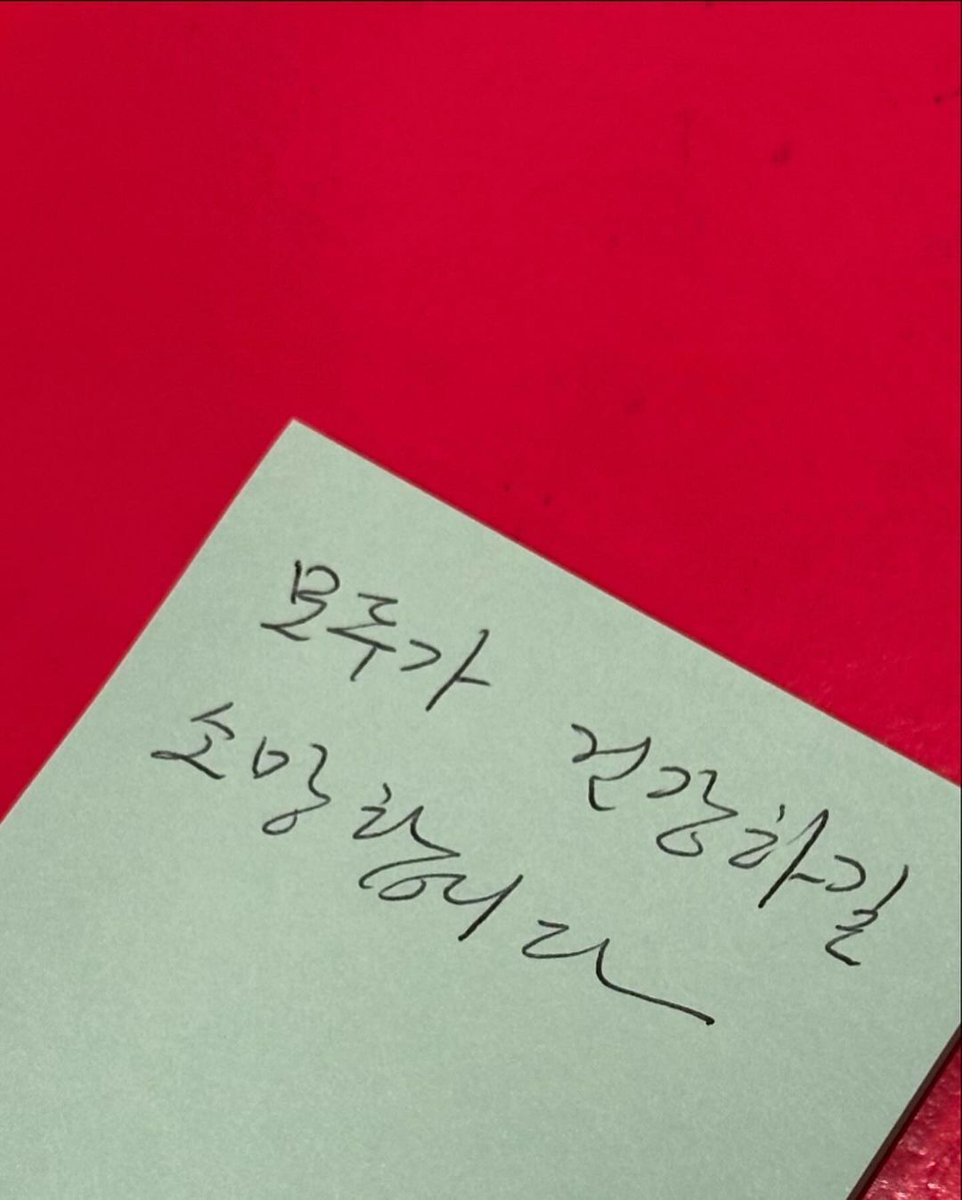 모두가 건강하길
소망합니다